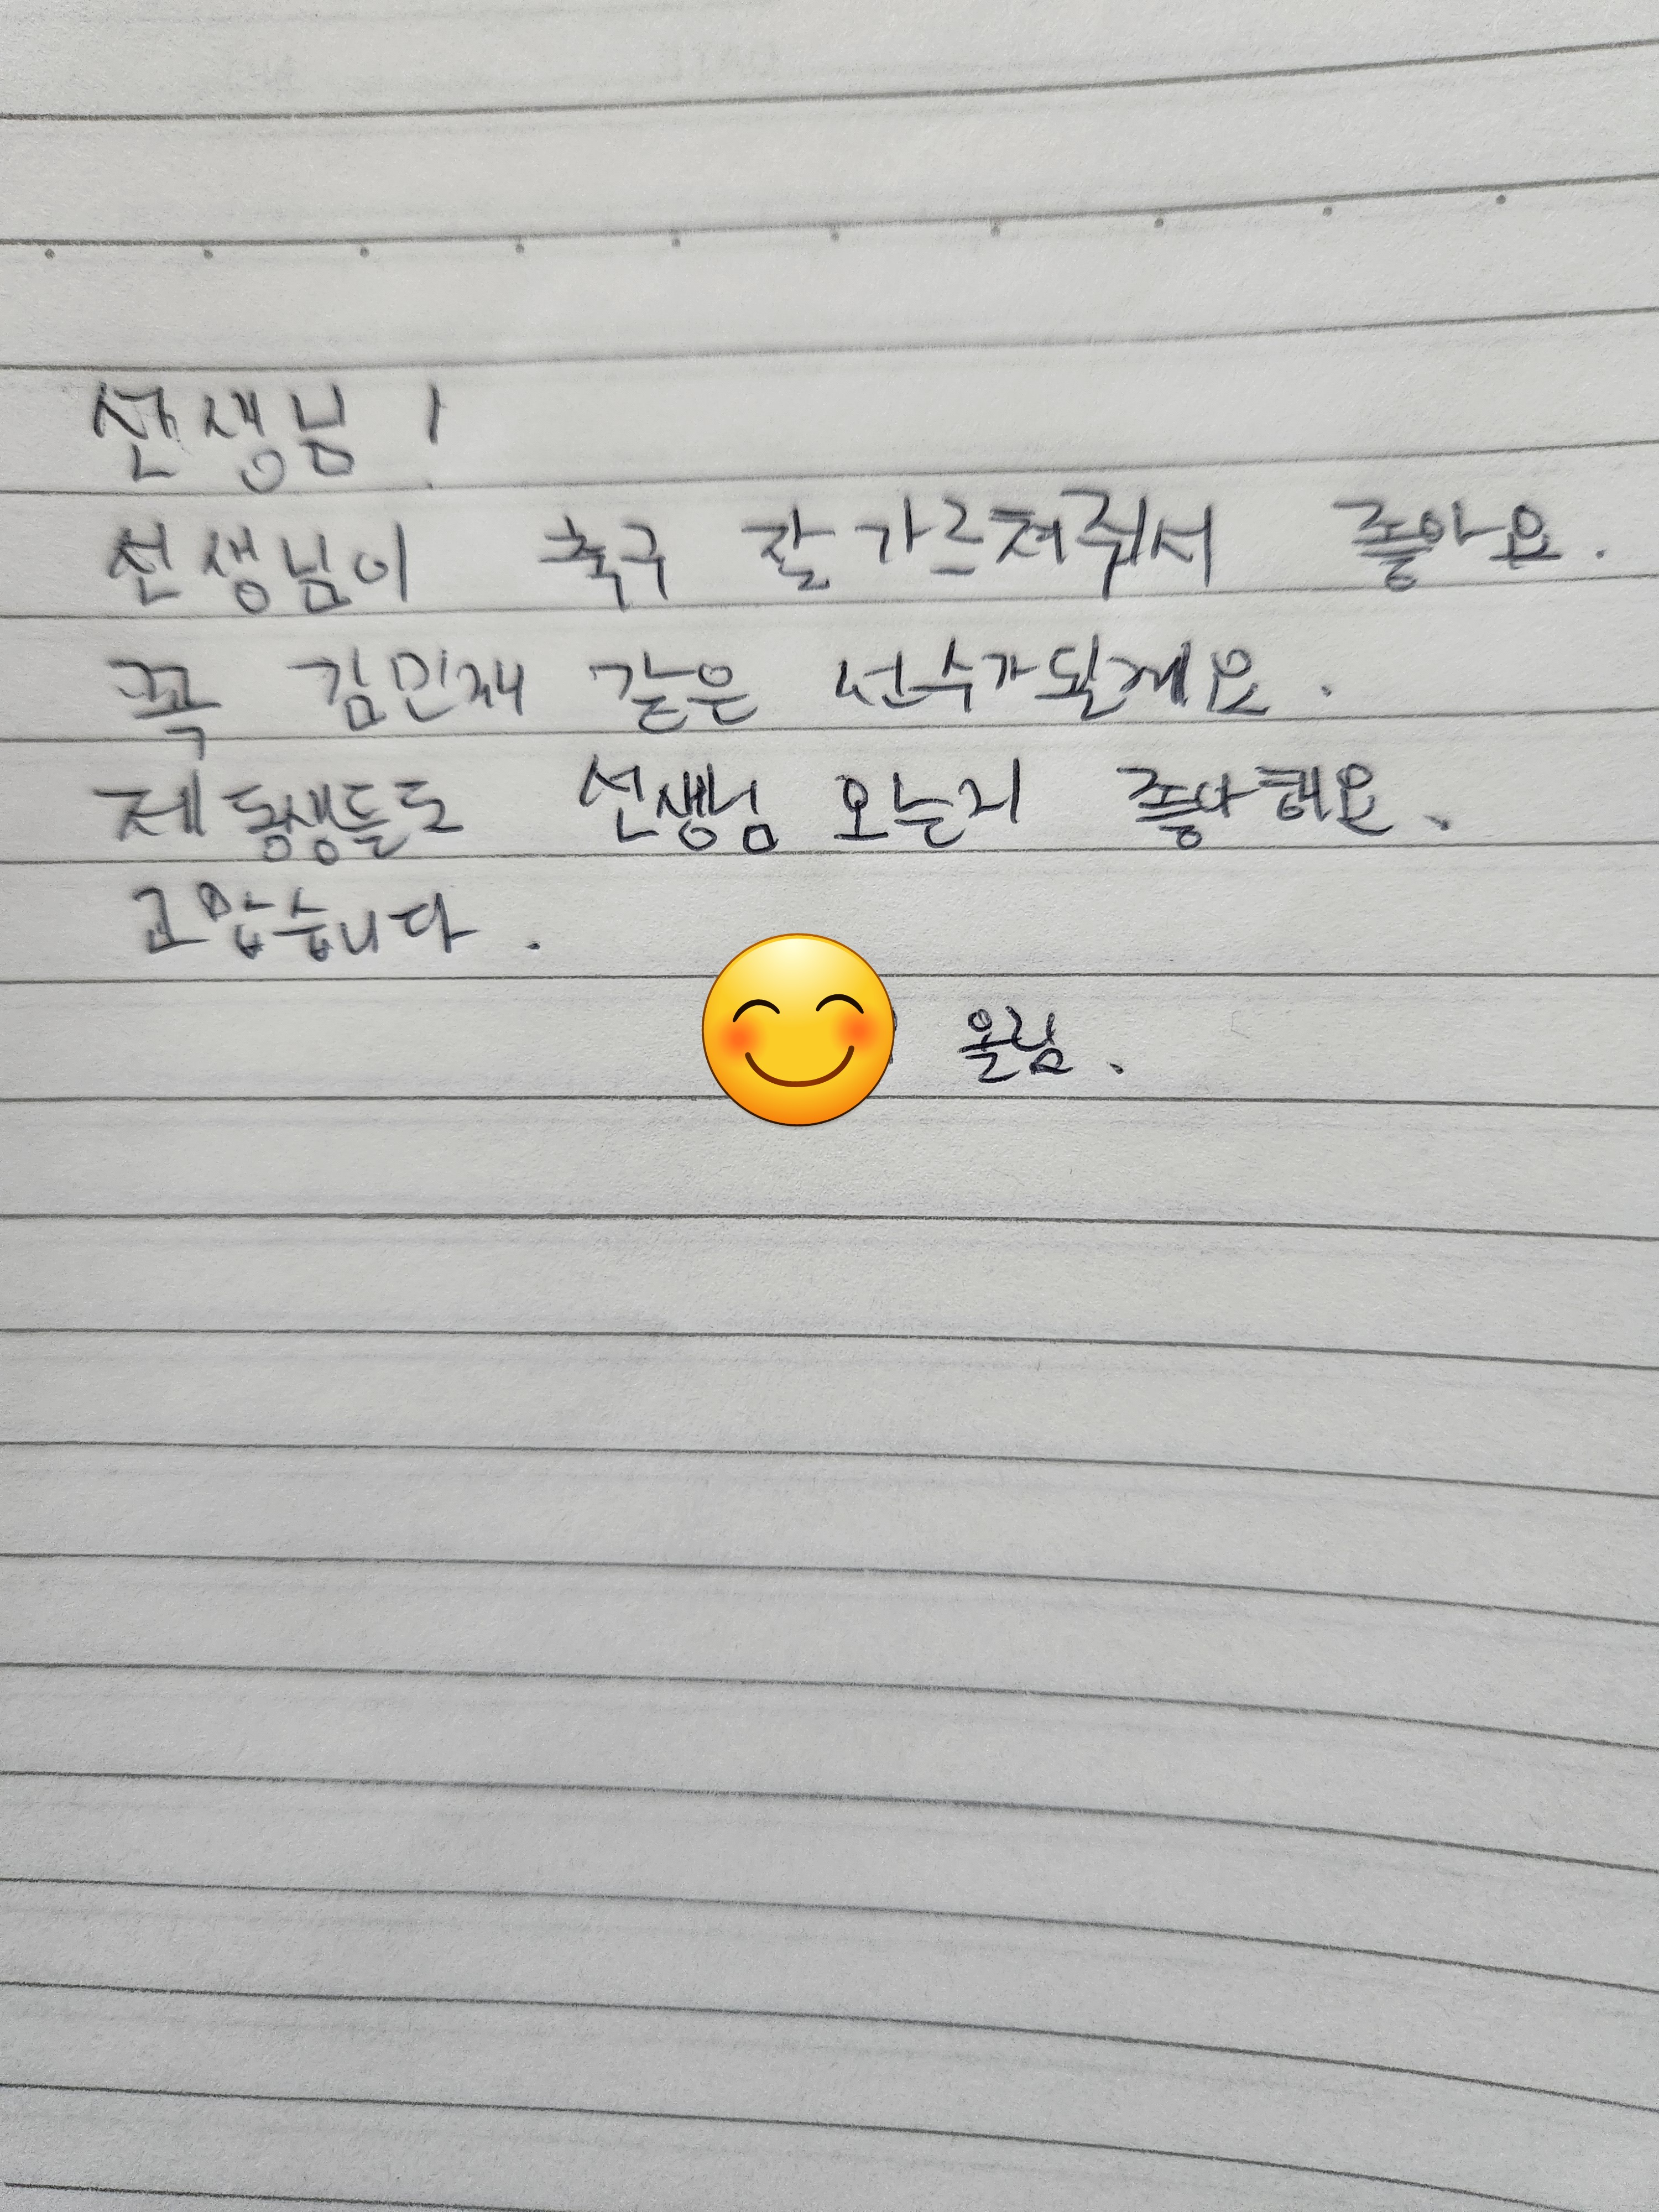 선생님!
선생님이 축구 잘 가르쳐줘서 좋아요.
꼭 김민재 같은 선수가될게요.
제 동생들도 선생님 오는거 좋아해요.
고맙습니다.
올림.